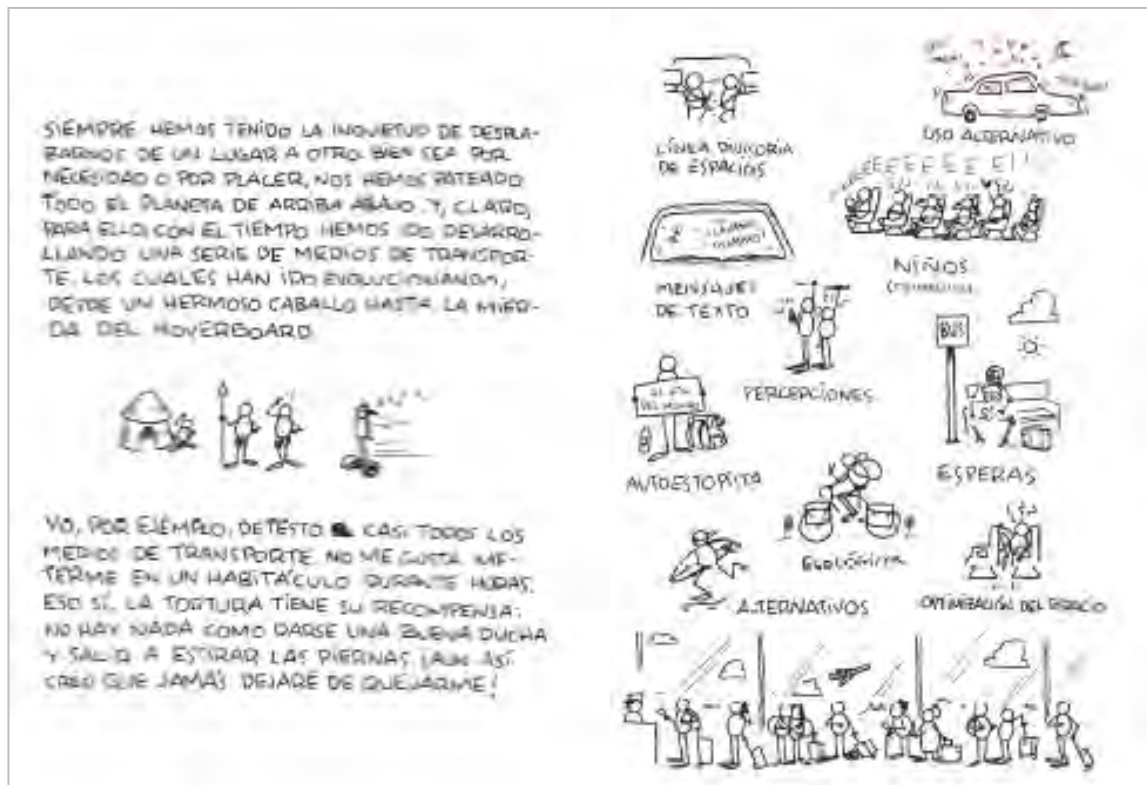 SIEMPRE HEMOS TENIDO LA INQUIETUD DE DESPLA-
ZARNOS DE UN LUGAR A OTRO. BIEN SEA POR
NECESIDAD O POR PLACER, NOS HEMOS PATEADO
TODO EL PLANETA DE ARRIBA ABAJO. Y, CLARO,
PARA ELLO, CON EL TIEMPO HEMOS IDO DESARRO-
LLANDO UNA SERIE DE MEDIOS DE TRANSPOR-
TE, LOS CUALES HAN IDO EVOLUCIONANDO,
DESDE UN HERMOSO CABALLO HASTA LA MIER-
DA DEL HOVERBOARD.
YO, POR EJEMPLO, DETESTO CASI TODOS LOS
MEDIOS DE TRANSPORTE. NO ME GUSTA ME-
TERME EN UN HABITÁCULO DURANTE HORAS.
ESO SÍ, LA TORTURA TIENE SU RECOMPENSA:
NO HAY NADA COMO DARSE UNA BUENA DUCHA
Y SALIR A ESTIRAR LAS PIERNAS ¡AUN ASÍ
CREO QUE JAMÁS DEJARÉ DE QUEJARME!
LÍNEA DIVISORIA
DE ESPACIOS
USO ALTERNATIVO
EEEEEEE E!!
NIÑOS
MENSAJES
DE TEXTO
PERCEPCIONES
BUS
AL FIN
DEL MUNDO
AUTOESTOPISTA
ESPERAS
ECOLÓGICOS
ALTERNATIVOS
OPTIMIZACIÓN DEL ESPACIO